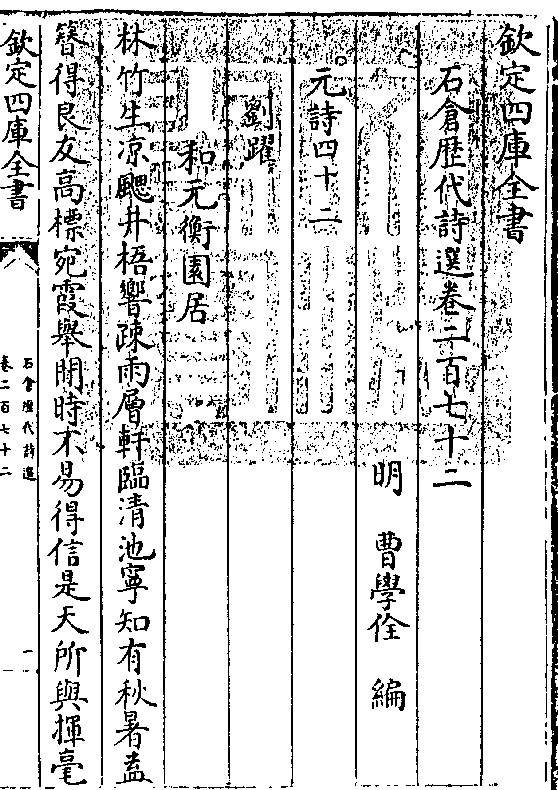 欽定四庫全書
石倉歴代詩選卷二百七十二
明 曹學佺 編
元詩四十二
劉躍
和元衡園居
林竹生凉颸井梧響疎雨層軒臨清池寧知有秋暑盍
簪得良友高標宛霞舉閒時不易得信是天所與揮毫
欽定四庫全書
石倉歷代詩選
卷二百七十二
一